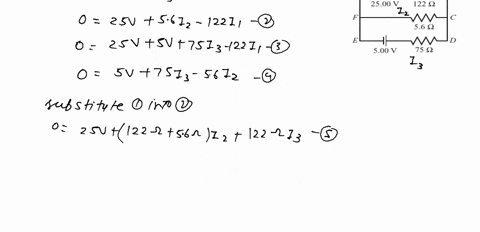 0 = 25V + 5.6I₂ - 122I₁ - ②
0 = 25V + 5V + 75I₃ - 122I₁ - ③
0 = 5V + 75I₃ - 56I₂ - ④
substitute ① into ②
0 = 25V + (122Ω + 56Ω) I₂ + 122ΩI₃ - ⑤
25.00 V I₂ 122 Ω
F C
5.6 Ω
E D
5.00 V 75 Ω
I₃